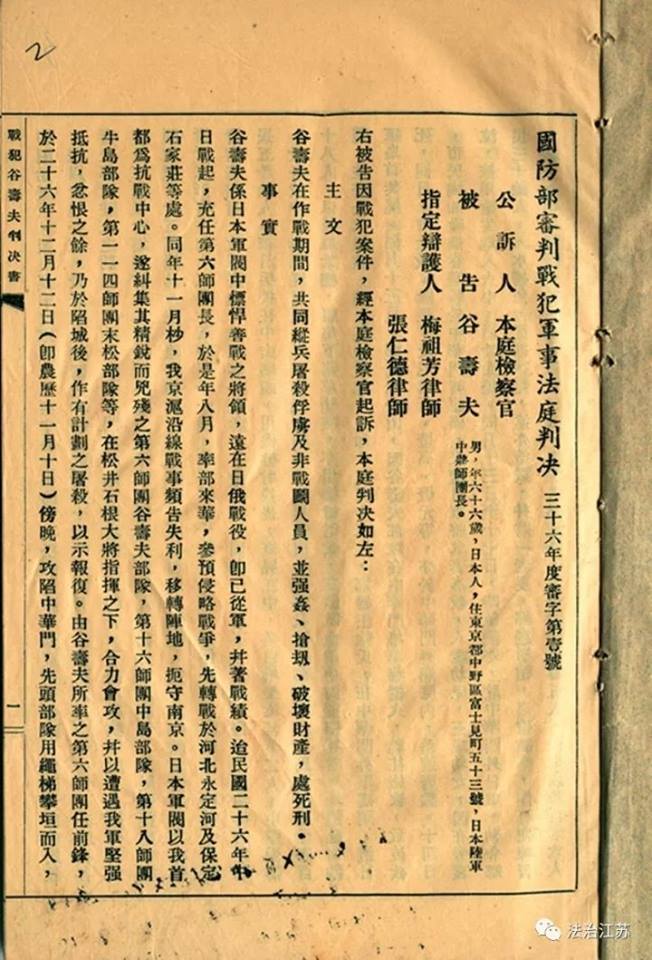 2
國防部審判戰犯軍事法庭判决 三十六年度審字第壹號
公訴人 本庭檢察官
被告 谷壽夫 男，年六十六歲，日本人，住東京都中野區富士見町五十三號，日本陸軍
中將師團長。
指定辯護人 梅祖芳律師
張仁德律師
右被告因戰犯案件，經本庭檢察官起訴，本庭判决如左：
主文
谷壽夫在作戰期間，共同縱兵屠殺俘虜及非戰鬪人員，並强姦、搶刼、破壞財產，處死刑。
事實
谷壽夫係日本軍閥中慓悍善戰之將領，遠在日俄戰役，卽已從軍，幷著戰績。迨民國二十六年中
日戰起，充任第六師團長，於是年八月，率部來華，參預侵略戰爭，先轉戰於河北永定河及保定
石家莊等處。同年十一月杪，我京滬沿線戰事頻告失利，移轉陣地，扼守南京。日本軍閥以我首
都爲抗戰中心，遂糾集其精銳而兇殘之第六師團谷壽夫部隊，第十六師團中島部隊，第十八師團
牛島部隊，第一一四師團末松部隊等，在松井石根大將指揮之下，合力會攻，幷以遭遇我軍堅强
抵抗，忿恨之餘，乃於陷城後，作有計劃之屠殺，以示報復。由谷壽夫所率之第六師團任前鋒，
於二十六年十二月十二日（卽農歷十一月十日）傍晚，攻陷中華門，先頭部隊用繩梯攀垣而入，
戰犯谷壽夫判决書
一
法治江苏